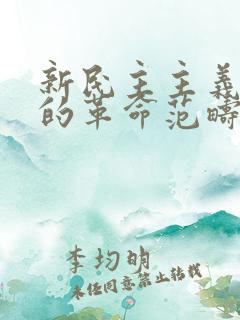 新民主主義
的革命范疇
李均明
未经同意禁止转载